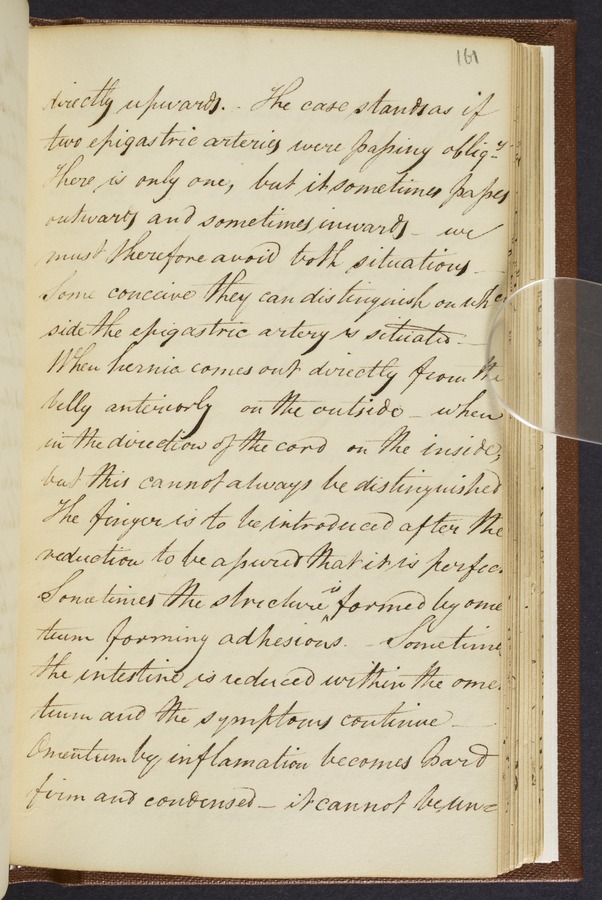 161
directly upwards. - The case stands as if
two epigastric arteries were passing obliq.ly
There is only one, but it sometimes passes
outwards and sometimes inwards - we
must therefore avoid both situations -
Some conceive they can distinguish on whc
side the epigastric artery is situated -
When hernia comes out directly from the
belly anteriorly on the outside - when
in the direction of the cord on the inside,
but this cannot always be distinguished
The finger is to be introduced after the
reduction to be assured that it is perfec
Sometimes the stricture is formed by ome
tum forming adhesions. - Sometime
the intestine is reduced within the ome
tum and the symptoms continue -
Omentum by inflamation becomes hard
firm and condensed - it cannot be un=